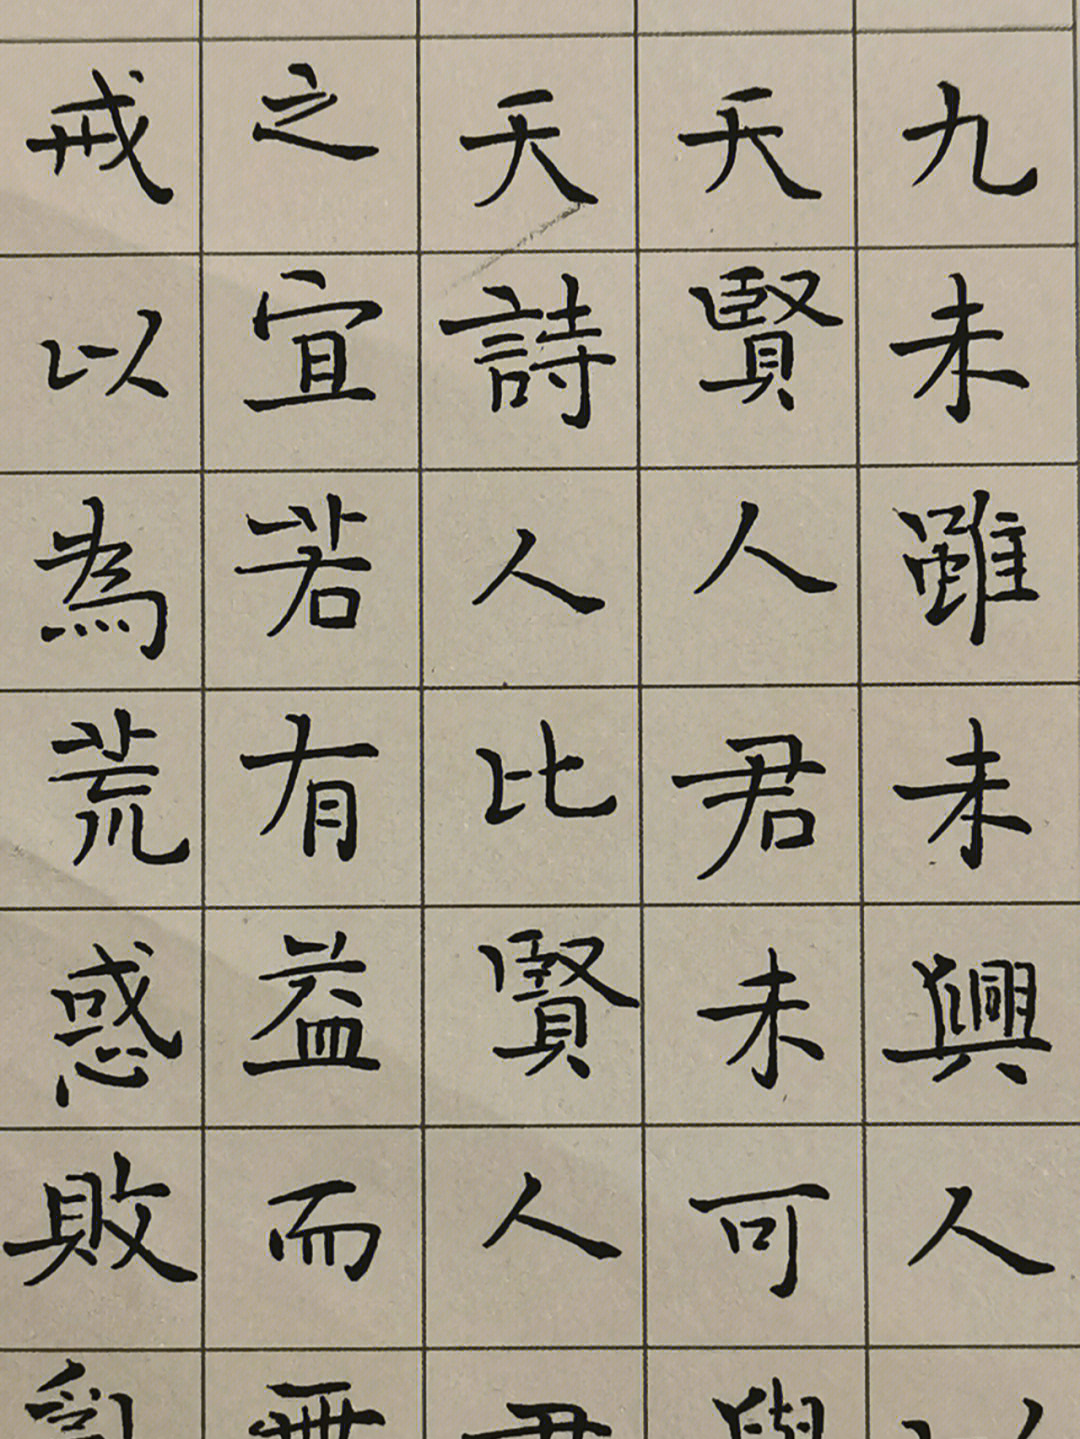 九未雖未興人
天賢人君未可
天詩人比賢人
之宜若有益而
戒以為荒惑敗